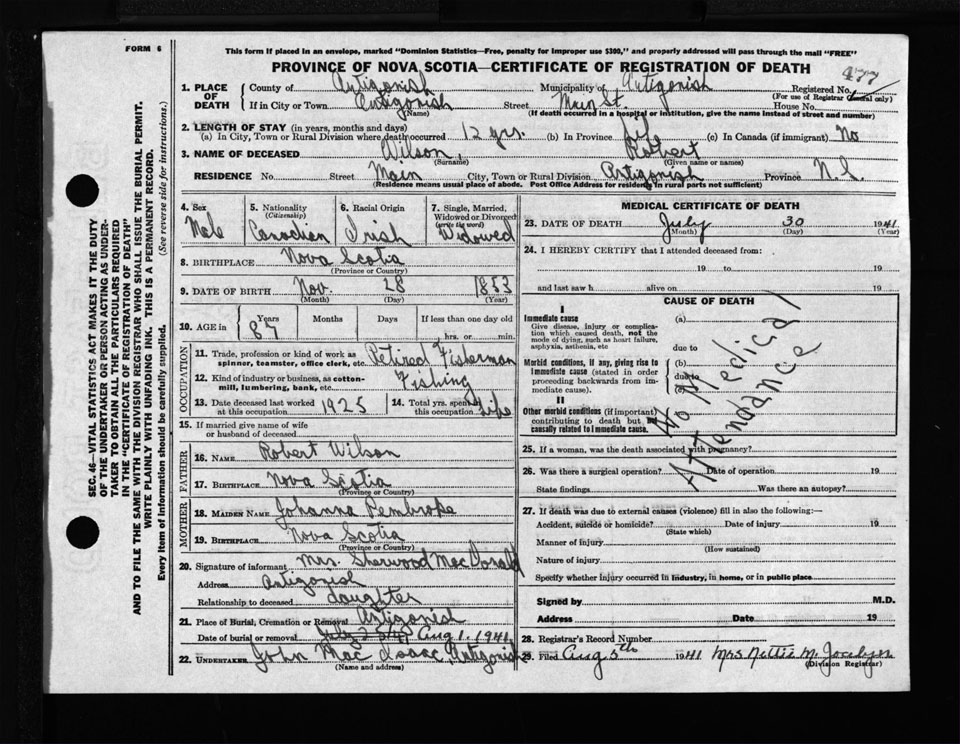 FORM 6
This form if placed in an envelope, marked "Dominion Statistics—Free, penalty for improper use $300," and properly addressed will pass through the mail "FREE"
PROVINCE OF NOVA SCOTIA—CERTIFICATE OF REGISTRATION OF DEATH
477
1. PLACE OF DEATH
County of Antigonish Municipality of Antigonish Registered No.
(For use of Registrar General only)
If in City or Town Antigonish Street Main St. House No.
(Name) (If death occurred in a hospital or institution, give the name instead of street and number)
2. LENGTH OF STAY (in years, months and days)
(a) In City, Town or Rural Division where death occurred 12 yrs. (b) In Province life (c) In Canada (if immigrant) No
3. NAME OF DECEASED Wilson, Robert
(Surname) (Given name or names)
RESIDENCE No. Street Main City, Town or Rural Division Antigonish Province N.S.
(Residence means usual place of abode. Post Office Address for residents in rural parts not sufficient)
4. Sex Male
5. Nationality (Citizenship) Canadian
6. Racial Origin Irish
7. Single, Married, Widowed or Divorced (write the word) Widowed
8. BIRTHPLACE Nova Scotia
(Province or Country)
9. DATE OF BIRTH Nov. 28 1853
(Month) (Day) (Year)
10. AGE in Years 87 Months Days If less than one day old
hrs. or min.
OCCUPATION
11. Trade, profession or kind of work as spinner, teamster, office clerk, etc. Retired Fisherman
12. Kind of industry or business, as cotton-mill, lumbering, bank, etc. Fishing
13. Date deceased last worked at this occupation 1925
14. Total yrs. spent in this occupation Life
15. If married give name of wife or husband of deceased
FATHER
16. NAME Robert Wilson
17. BIRTHPLACE Nova Scotia
(Province or Country)
MOTHER
18. MAIDEN NAME Johanna Pembroke
19. BIRTHPLACE Nova Scotia
(Province or Country)
20. Signature of informant Mrs. Sherwood MacDonald
Address Antigonish
Relationship to deceased daughter
21. Place of Burial, Cremation or Removal Antigonish
Date of burial or removal Aug 1. 1941
22. UNDERTAKER John Mac Isaac, Antigonish
(Name and address)
MEDICAL CERTIFICATE OF DEATH
23. DATE OF DEATH July 30 1941
(Month) (Day) (Year)
24. I HEREBY CERTIFY that I attended deceased from:
19 to 19
and last saw h alive on 19
CAUSE OF DEATH
I
Immediate cause (a)
Give disease, injury or complication which caused death, not the mode of dying, such as heart failure, asphyxia, asthenia, etc
due to
Morbid conditions, if any, giving rise to immediate cause (stated in order proceeding backwards from immediate cause).
(b)
due to
(c)
II
Other morbid conditions (if important) contributing to death but not causally related to immediate cause.
No Medical Attendance
25. If a woman, was the death associated with pregnancy?
26. Was there a surgical operation? Date of operation 19
State findings Was there an autopsy?
27. If death was due to external causes (violence) fill in also the following:—
Accident, suicide or homicide? Date of injury 19
(State which)
Manner of injury
(How sustained)
Nature of injury
Specify whether injury occurred in industry, in home, or in public place
Signed by M.D.
Address Date 19
28. Registrar's Record Number
29. Filed Aug 5th 1941 Mrs Nettie M.
(Division Registrar)
SEC. 46—VITAL STATISTICS ACT MAKES IT THE DUTY
OF THE UNDERTAKER OR PERSON ACTING AS UNDER-
TAKER TO OBTAIN ALL THE PARTICULARS REQUIRED
IN THE "CERTIFICATE OF REGISTRATION OF DEATH"
AND TO FILE THE SAME WITH THE DIVISION REGISTRAR WHO SHALL ISSUE THE BURIAL PERMIT.
WRITE PLAINLY WITH UNFADING INK. THIS IS A PERMANENT RECORD.
Every item of information should be carefully supplied. (See reverse side for instructions.)